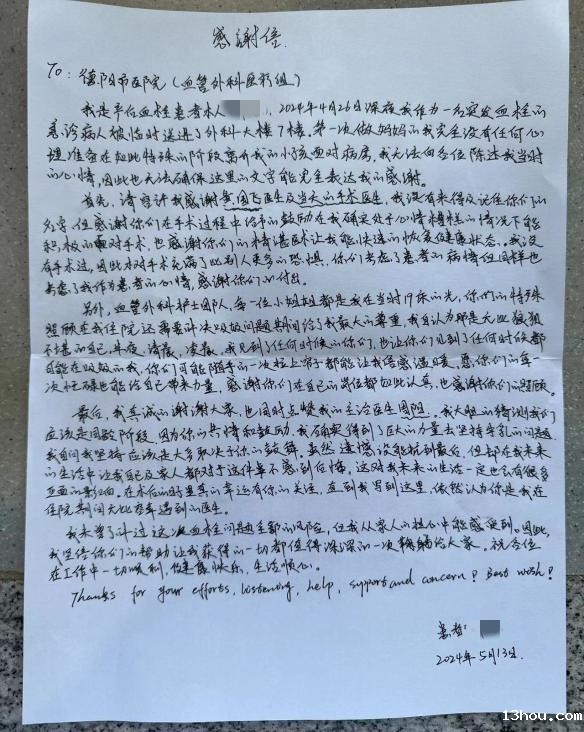 感谢信.
To: 德阳市医院(血管外科医疗组)
我是产后血栓患者本人 ),2024年4月26日深夜我作为一名突发血栓的
急诊病人被临时送进了外科大楼7楼,第一次做妈妈的我完全没有任何心
理准备在如此特殊的阶段离开我的小孩面对病房,我无法向各位陈述我当时
的心情,因此也无法确保这里的文字能完全表达我的感谢。
首先,请容许我感谢黄国飞医生及当天的手术医生,我没有来得及记住你们的
名字,但感谢你们在手术过程中给予的鼓励在我确实处于心情糟糕的情况下能
积极的面对手术,也感谢你们的精湛医术让我能快速的恢复健康状态。我没
有手术过,因此对手术充满了比别人更多的恐惧,你们考虑了患者的病情但同样也
考虑了我作为患者的心情,感谢你们的付出。
另外,血管外科护士团队,每一位小姐姐都是我在当时19床的光,你们的特殊
照顾在我住院还需要解决吸奶问题期间给了我最大的尊重,我自认为那是无比狼狈
不堪的自己,半夜、清晨、凌晨,我见到了任何时候的你们,也让你们见到了任何时候都
可能在吸奶的我,你们可能随手的一次拉上帘子都能让我倍感温暖,愿你们的每一
次忙碌也能给自己带来力量,感谢你们在自己的岗位都如此认真,也感谢你们的照顾。
最后,我真诚的谢谢大家,也同时点赞我的主治医生周阳,我大胆的猜测我们
应该是同龄阶段,因为你的共情和鼓励,我确实得到了巨大的力量去坚持母乳的问题,
我自问我坚持应该是大多取决于你的鼓舞。虽然遗憾没能抗到最后,但却在我未来
的生活中让我自己及家人都对于这件事不感到后悔,这对我未来的生活一定也有很多
正面的影响。在术后的时里真的幸运有你的关注,直到我写到这里,依然认为你是我在
住院期间无比荣幸遇到的医生。
我未曾了解过这次血栓问题全部的风险,但我从家人的担心中能感受到。因此,
我坚信你们的帮助让我获得的一切都值得深深的一次鞠躬给大家。祝各位
在工作中一切顺利,健康快乐,生活顺心。
Thanks for your efforts, listening, help, support and concern! Best wish!
患者:
2024年5月13日.
13hou.com